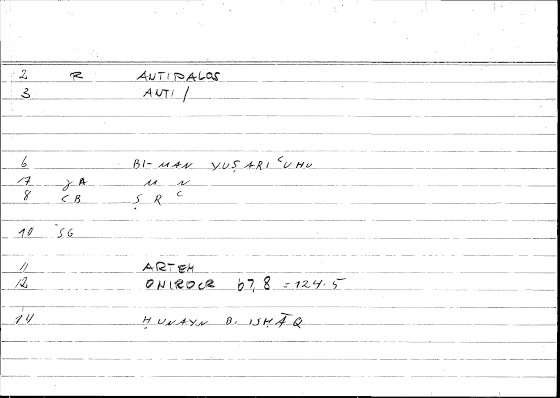 2 R ANTIPALOS
3 ANTI/
6 BI-MAN YUṢARIʿUHU
17 gA M N
8 CB Ṣ R ʿ
10 SG
11 ARTEM
12 ONIROCR 67,8 = 124.5
14 ḤUNAYN B. ISḤĀQ